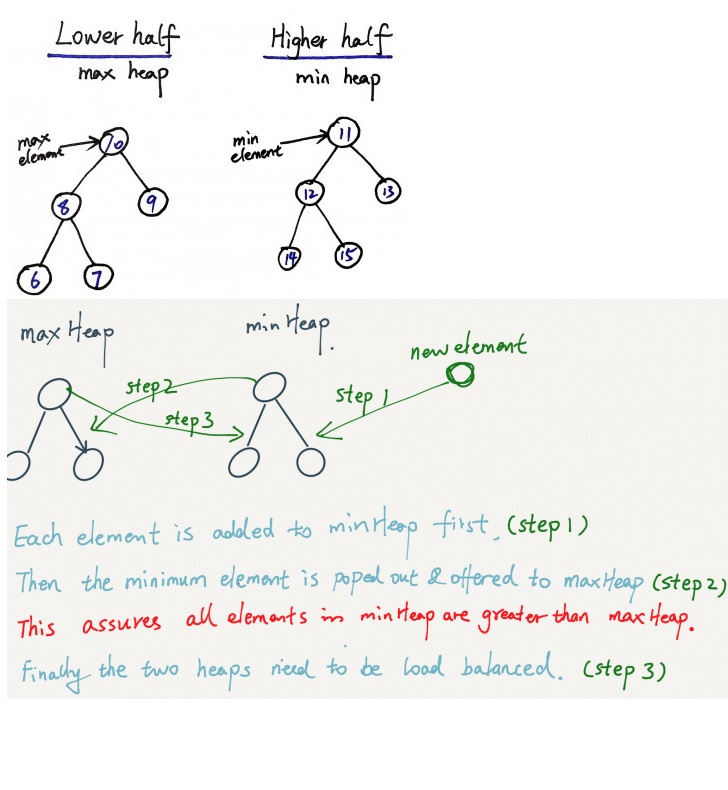 Lower half
max heap
Higher half
min heap
max
element
10
8
9
6
7
min
element
11
12
13
14
15
max Heap
min Heap.
new element
step 2
step 3
step 1
Each element is added to minHeap first. (step 1)
Then the minimum element is poped out & offered to maxHeap (step 2)
This assures all elements in minHeap are greater than maxHeap.
Finally the two heaps need to be load balanced. (step 3)